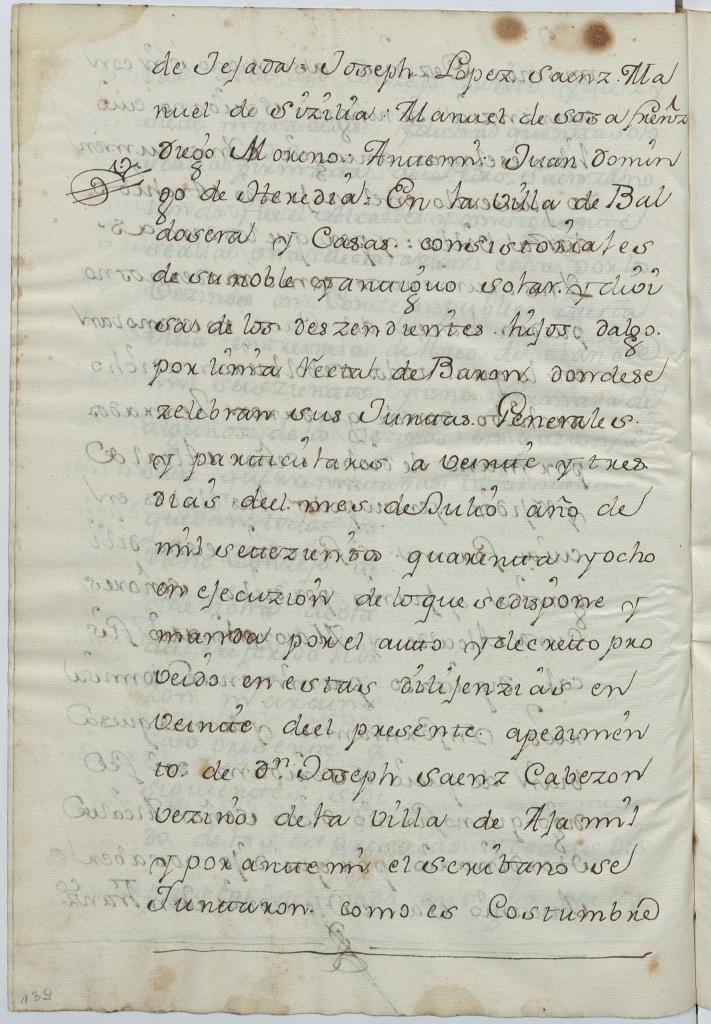 de Tejada: Joseph Lopez Saenz. Ma
nuel de Sizilia: Manuel de Sosa
Diego Moreno: Antemi: Juan Domin
go de Heredia: En la villa de Bal
doseral y Casas: consistoriales
de su noble y antiguo solar. y divi
sas de los deszendientes hijos dalgo.
por linia Rectal de Baron donde se
zelebran sus Juntas Generales.
y particulares a veinte y tres
dias deel mes de Julio año de
mil settezientos quarenta y ocho
en ejecuzion de lo que se dispone y
manda por el autto y decretto pro
veido en estas dilijenzias en
veinte deel presente. a pedimen
to. de Dn. Joseph Saenz Cabezon
vezino de la villa de Ajamil
y por antte mi el scribano se
Junttaron. como es Costumbre
139